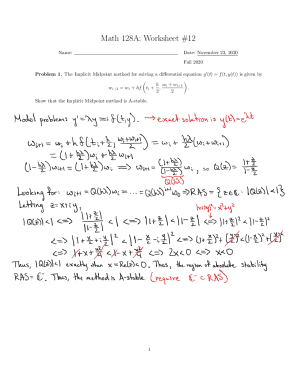 Math 128A: Worksheet #12
Name: Date: November 23, 2020
Fall 2020
Problem 1. The Implicit Midpoint method for solving a differential equation y'(t) = f(t, y(t)) is given by
w_{i+1} = w_i + hf(t_i + h/2, (w_i + w_{i+1})/2).
Show that the Implicit Midpoint is A-stable.
Model problem: y' = λy = f(t,y). → exact solution is y(t) = e^{λt}
w_{i+1} = w_i + h f(t_i + h/2, (w_i + w_{i+1})/2) = w_i + hλ/2 (w_i + w_{i+1})
= (1 + hλ/2) w_i + hλ/2 w_{i+1}
(1 - hλ/2) w_{i+1} = (1 + hλ/2) w_i ⟹ w_{i+1} = (1 + hλ/2)/(1 - hλ/2) w_i, so Q(z) = (1 + z/2)/(1 - z/2)
Q(hλ)
Looking for: w_{i+1} = Q(hλ) w_i = ... = Q(hλ)^{i+1} w_0 ⟹ RAS = {z ∈ ℂ : |Q(z)| < 1}
Letting z = x + iy, |x+iy|² = x² + y²
|Q(z)| < 1 ⟺ |1 + z/2|/|1 - z/2| < 1 ⟺ |1 + z/2| < |1 - z/2| ⟺ |1 + z/2|² < |1 - z/2|²
⟺ |1 + x/2 + i y/2|² < |1 - x/2 - i y/2|² ⟺ (1 + x/2)² + (y/2)² < (1 - x/2)² + (y/2)²
⟺ 1 + x + x²/4 < 1 - x + x²/4 ⟺ 2x < 0 ⟺ x < 0
Thus, |Q(z)| < 1 exactly when x = Re(z) < 0. Thus, the region of absolute stability
RAS = ℂ⁻. Thus, the method is A-stable (require ℂ⁻ ⊂ RAS)
1